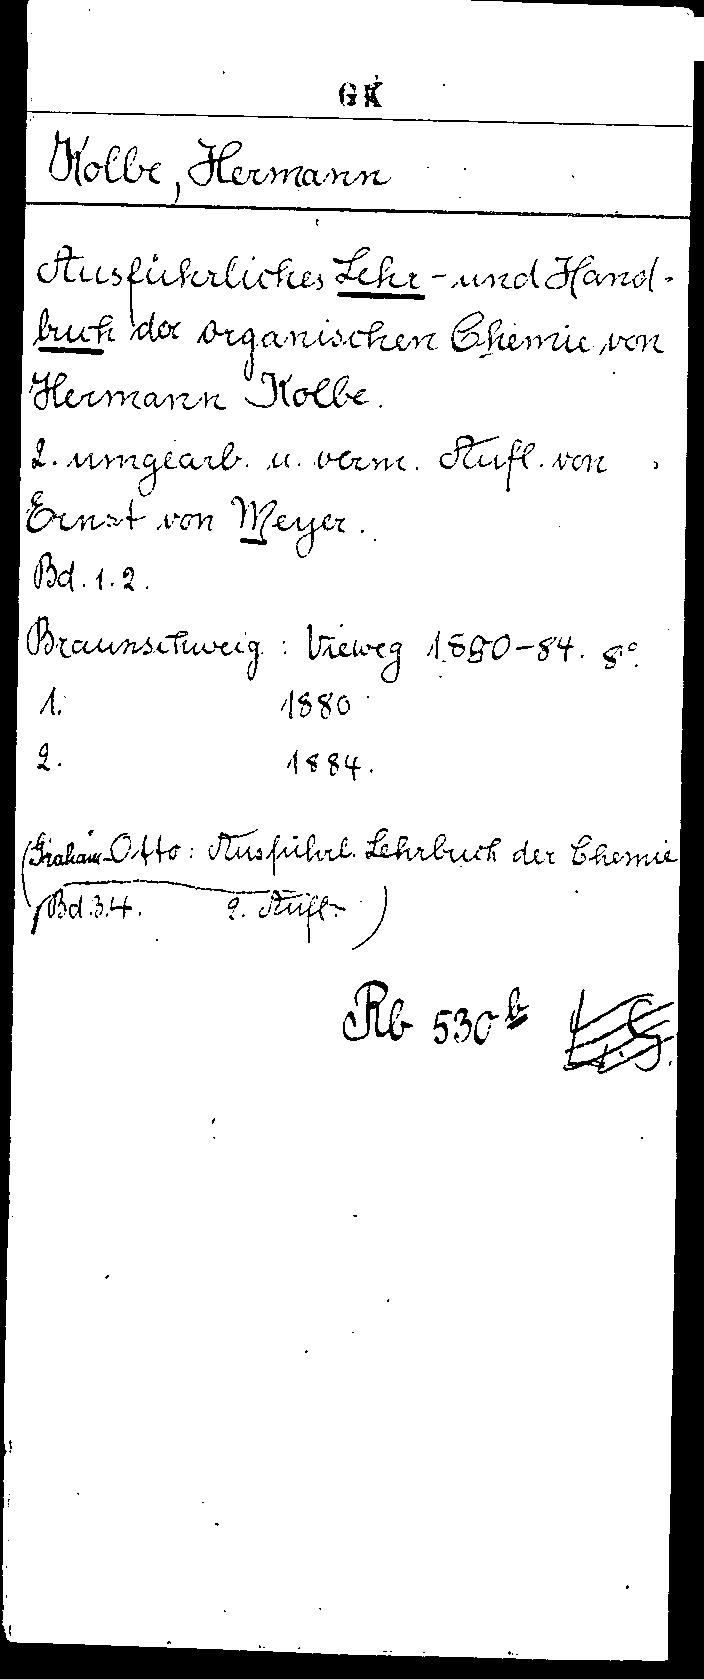 GK
Kolbe, Hermann
Ausführliches Lehr- und Hand-
buch der organischen Chemie von
Hermann Kolbe.
2. umgearb. u. verm. Aufl. von
Ernst von Meyer.
Bd. 1. 2.
Braunschweig: Vieweg 1880-84. 8°.
1. 1880
2. 1884.
(Graham-Otto: Ausführl. Lehrbuch der Chemie
Bd. 3.4. 2. Aufl.)
Rb 530 b